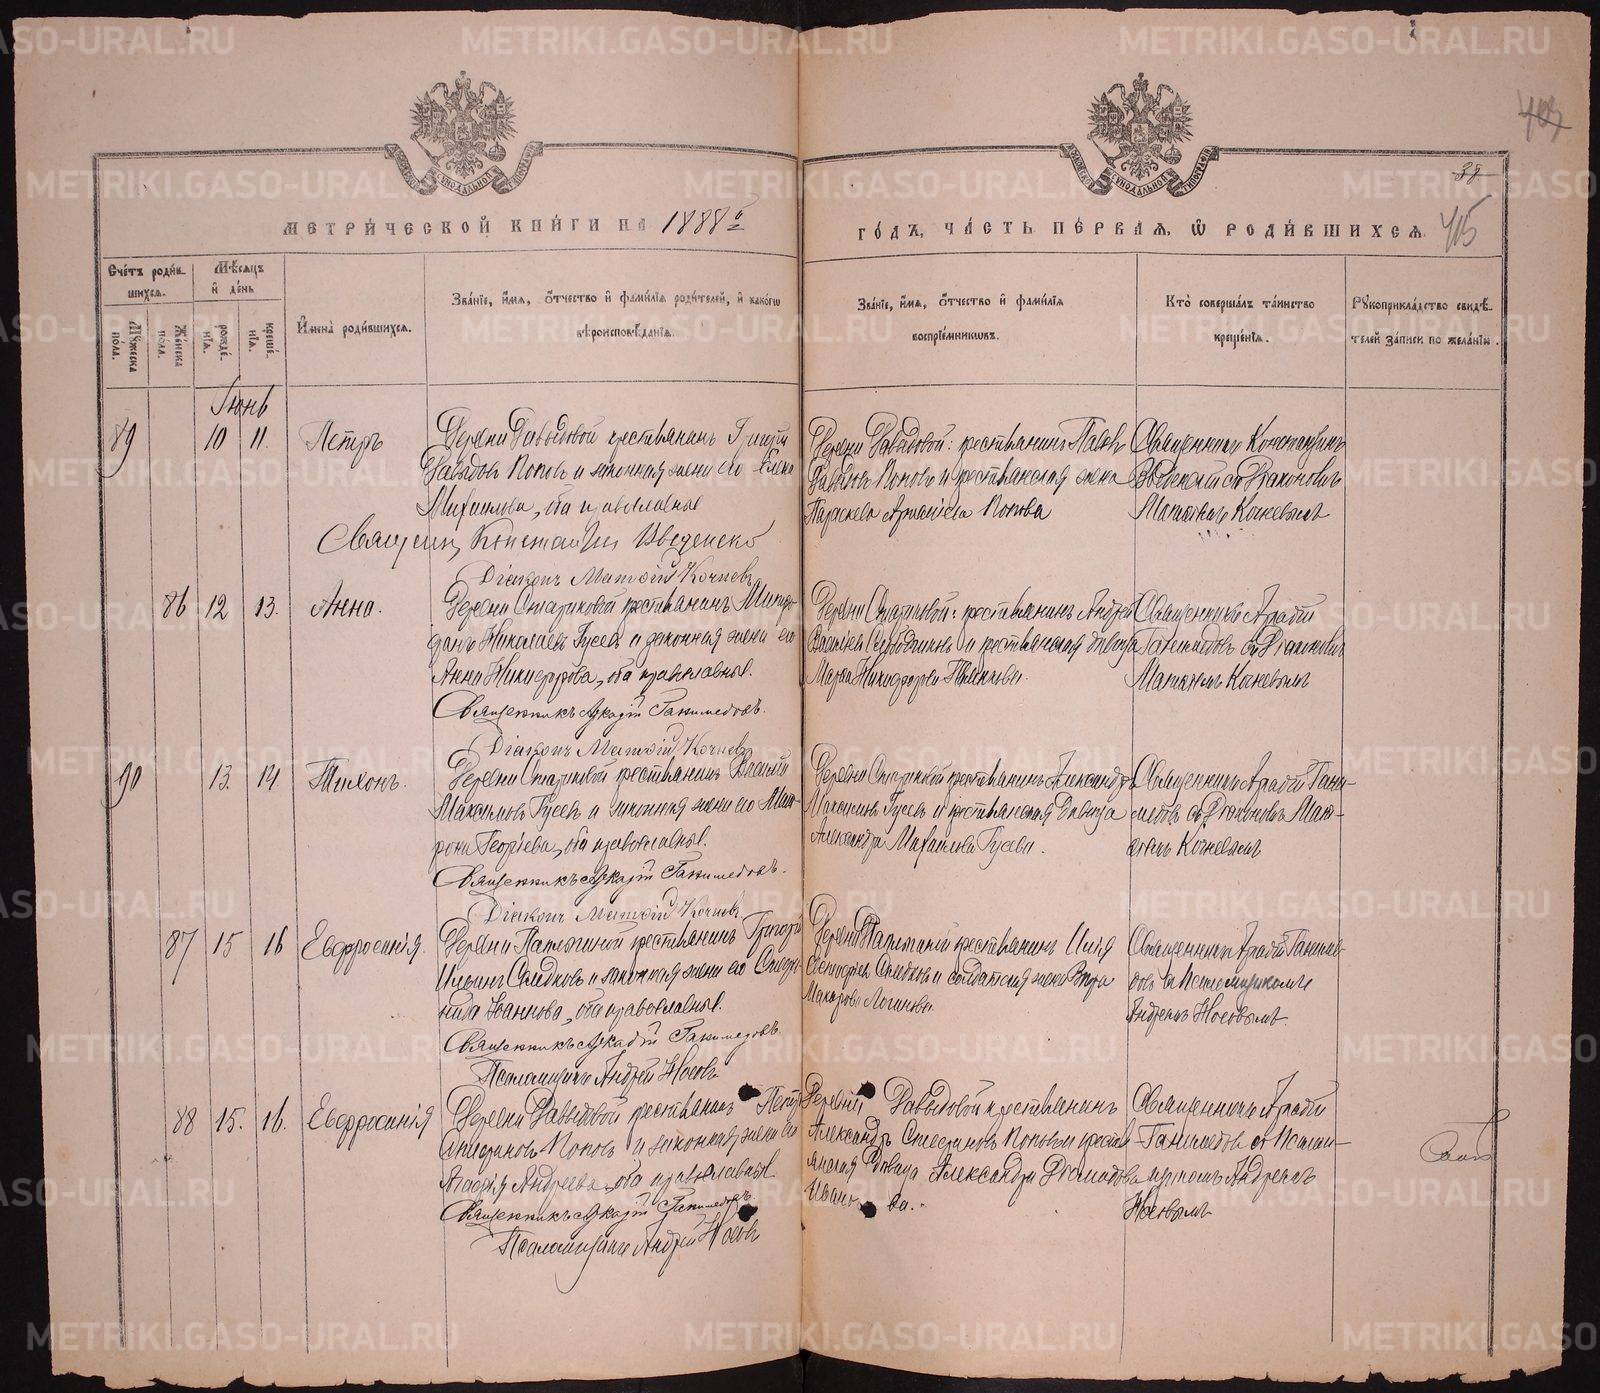 МЕТРИ́ЧЕСКОЙ КНИ́ГИ НА 1888й
ГО́ДЪ, ЧА́СТЬ ПЕ́РВАЯ, Ѡ РОДИ́ВШИХСЯ.
38
415
Сче́тъ роди́в-
шихся.
Му́жеска пола.
Же́нска по́ла.
Мѣ́сяцъ
и́ де́нь
рожде́-
нїя.
креще́-
нїя.
И҆мена̀ роди́вшихся.
Зва́нїе, и҆́мя, ѻ҆́тчество и҆ фами́лїя роди́телей, и҆ како́гѡ
вѣроисповѣ́данїя.
Зва́нїе, и҆́мя, ѻ҆́тчество и҆ фами́лїя
воспрїе́мниковъ.
Кто̀ соверша́лъ та́инство
креще́нїя.
Рꙋкоприкла́дство свидѣ́-
телей за́писи по жела́нїю.
Іюнь
89 10 11. Петръ
Деревни Давыдовой крестьянинъ Григорій
Давыдовъ Поповъ и законная жена его Елена
Михаилова, оба православные
Священ. Константин Введенскій
Діаконъ Матѳій Кочневъ
Деревни Давыдовой: крестьянинъ Павелъ
Давыдовъ Поповъ и крестьянская жена
Параскева Поповa
Священникъ Константинъ
Введенскій съ Діакономъ
Матѳіемъ Кочневымъ
86 12 13. Анна.
Деревни Стариковой крестьянинъ
Николаевъ Гусевъ и законная жена его
Анна Никифорова, оба православные.
Священникъ Аркадій Ганимедовъ.
Діаконъ Матѳій Кочневъ
Деревни Стариковой: крестьянинъ Андрей
Васильевъ и крестьянская дѣвица
Марѳа Никифорова
Священникъ Аркадій
Ганимедовъ съ Діакономъ
Матѳіемъ Кочневымъ
90 13. 14. Тихонъ.
Деревни Стариковой крестьянинъ Василій
Максимовъ Гусевъ и законная жена его Мат-
рона Георгіева, оба православные.
Священникъ Аркадій Ганимедовъ.
Діаконъ Матѳій Кочневъ.
Деревни Стариковой крестьянинъ Александръ
Максимовъ Гусевъ и крестьянская дѣвица
Александра Михаилова Гусева.
Священникъ Аркадій Гани-
медовъ съ Діакономъ Мат-
ѳіемъ Кочневымъ
87 15 16 Евфросинія.
Деревни крестьянинъ Григорій
Ильинъ и законная жена его Степа-
нида Иванова, оба православные.
Священникъ Аркадій Ганимедовъ.
Псаломщикъ Андрей Носовъ
Деревни крестьянинъ Илія
и солдатская жена Вѣра
Макарова Логинова
Священникъ Аркадій Ганиме-
довъ съ Псаломщикомъ
Андреемъ Носовымъ.
88 15. 16. Евфросинія
Деревни Давыдовой крестьянинъ Петръ
Стефановъ Поповъ и законная жена его
Агафія Андреева, оба православные
Священникъ Аркадій Ганимедовъ
Псаломщикъ Андрей Носовъ
Деревни Давыдовой крестьянинъ
Александръ Стефановъ Поповъ и кресть-
янская дѣвица Александра
Иванова.
Священникъ Аркадій
Ганимедовъ съ Псалом-
щикомъ Андреемъ
Носовымъ
METRIKI.GASO-URAL.RU